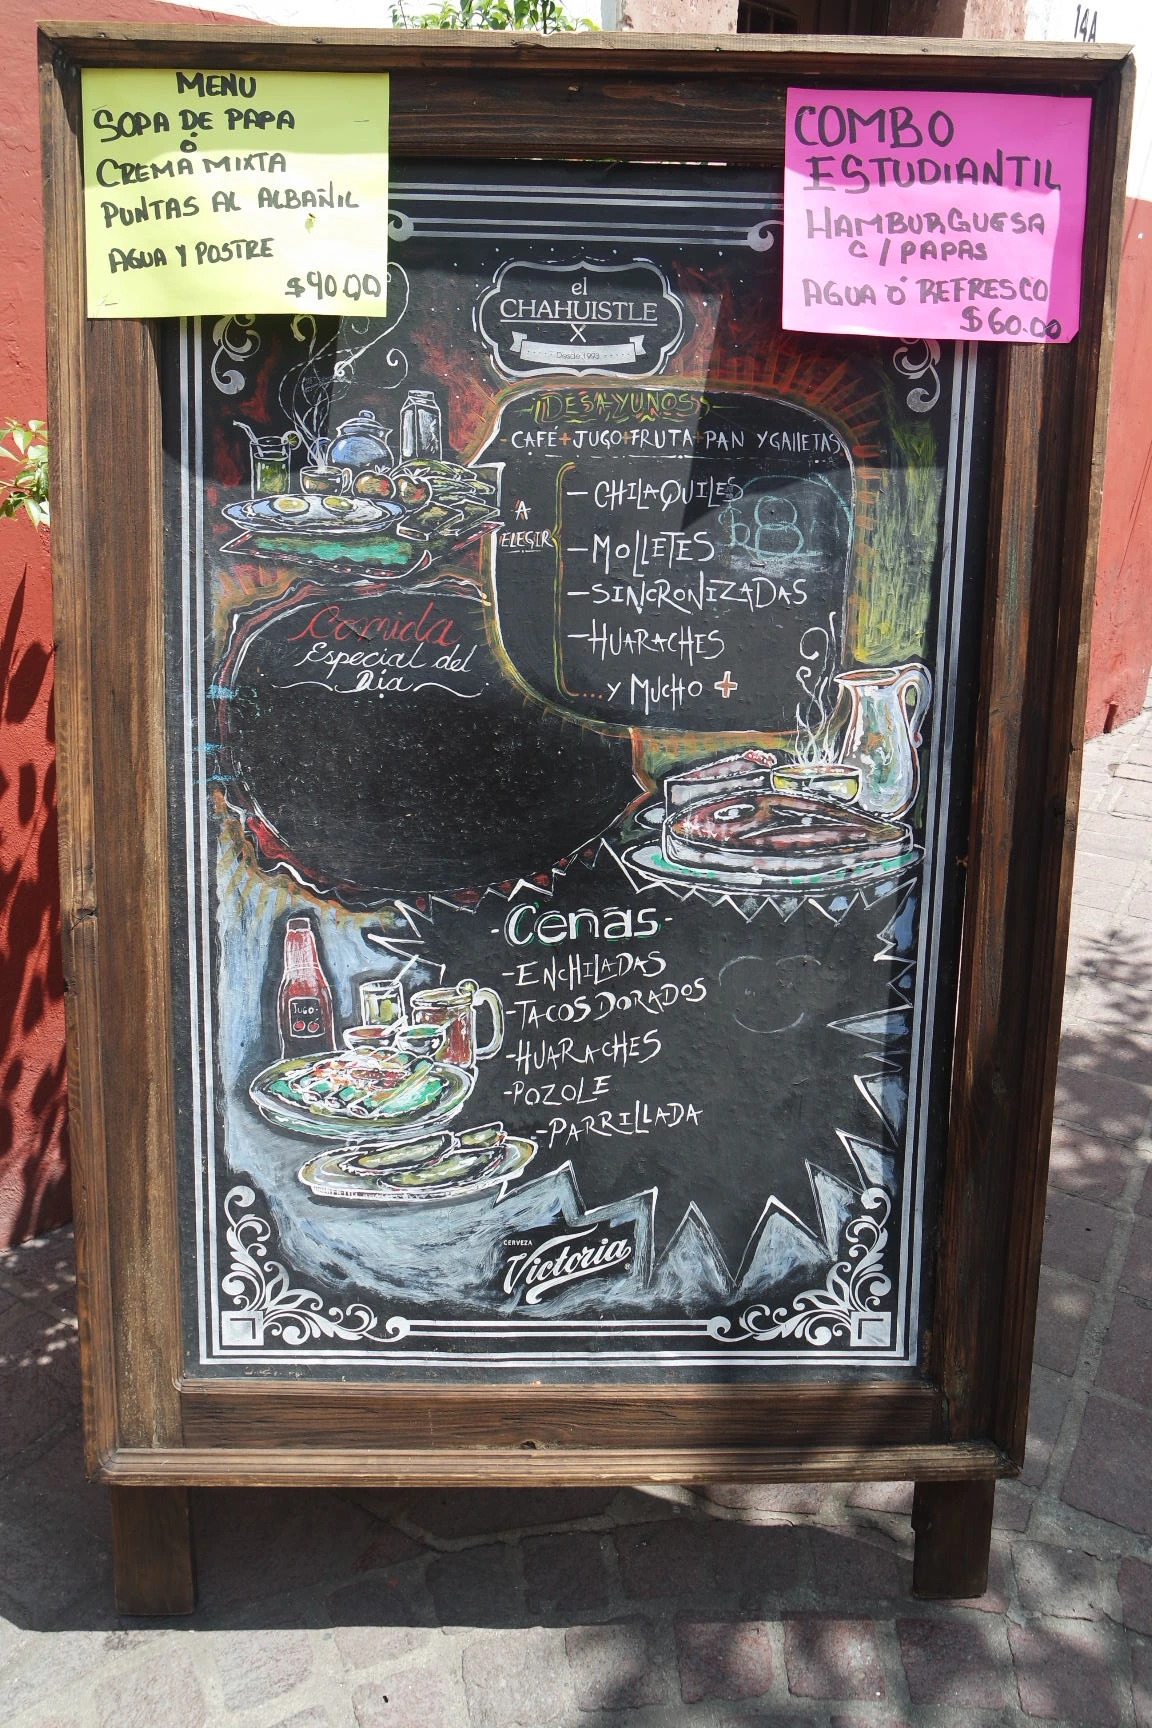 MENU
SOPA DE PAPA
Ó
CREMA MIXTA
PUNTAS AL ALBAÑIL
AGUA Y POSTRE
$90.00
COMBO
ESTUDIANTIL
HAMBURGUESA
C/PAPAS
AGUA Ó REFRESCO
$60.00
14A
el
CHAHUISTLE
X
Desde 1993
¡DESAYUNOS
-CAFÉ+JUGO+FRUTA+PAN Y GALLETAS
A
ELEGIR
-CHILAQUILES
-MOLLETES
-SINCRONIZADAS
-HUARACHES
...Y MUCHO +
Comida
Especial del
Día
-Cenas-
-ENCHILADAS
-TACOS DORADOS
-HUARACHES
-POZOLE
-PARRILLADA
JUGO
CERVEZA
Victoria®